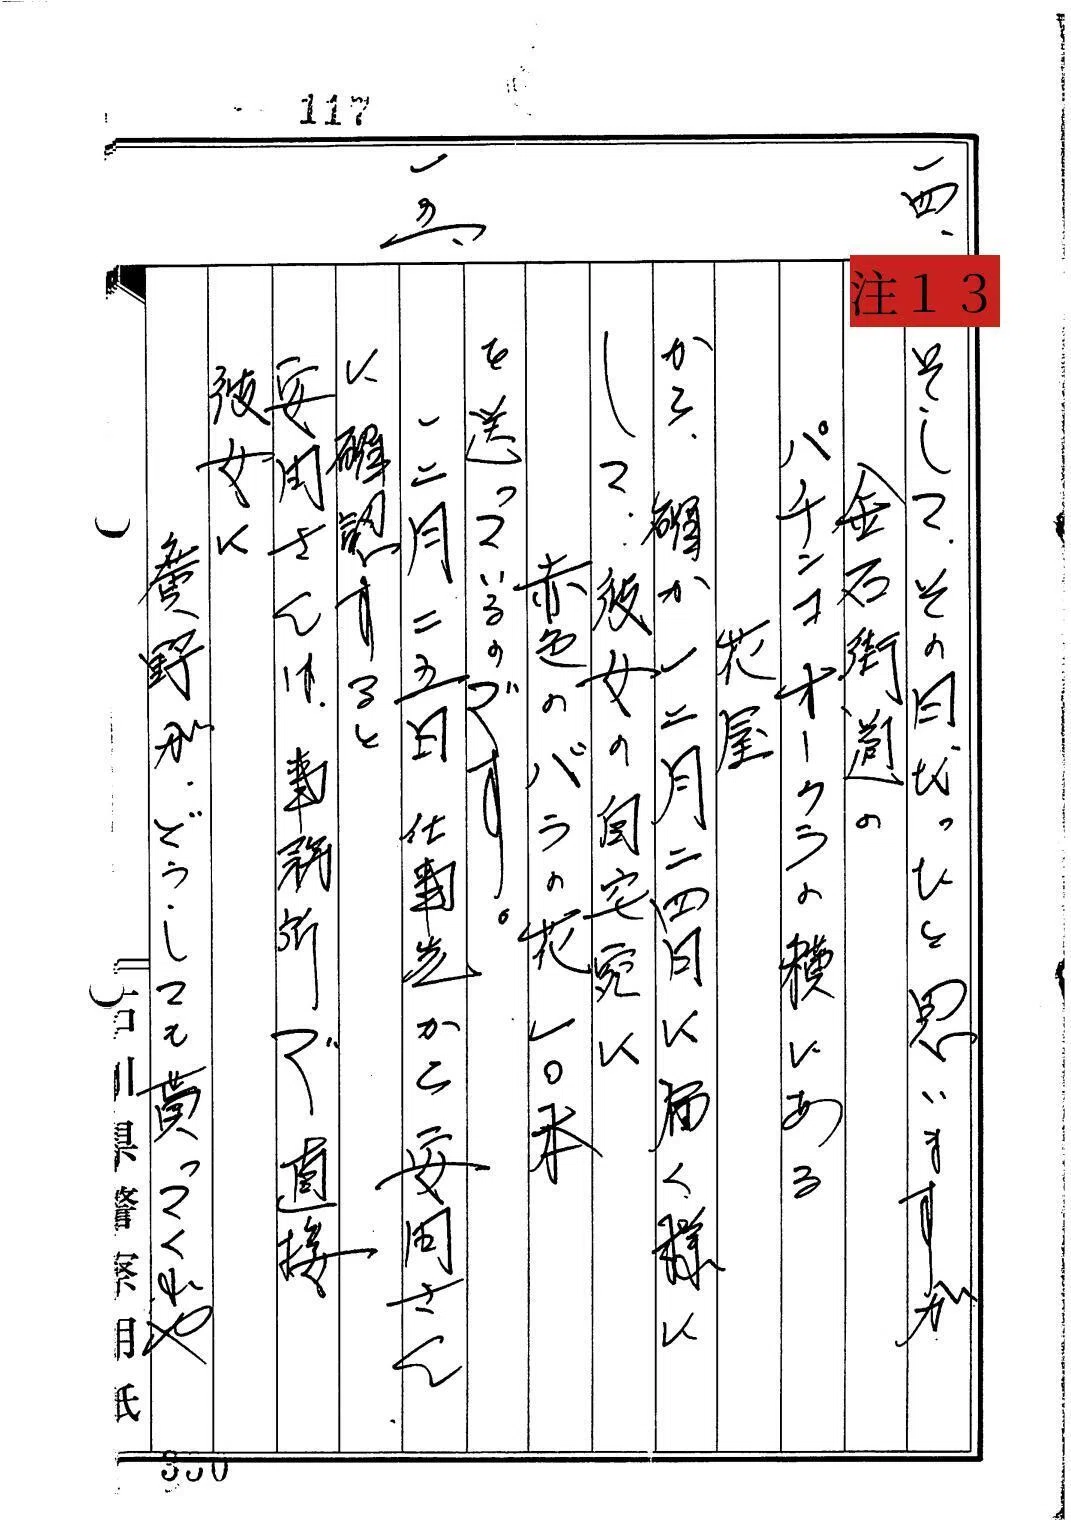 117
一四、
注１３
そして、その日だったと思いますが
金石街道の
パチンコオークラの横にある
花屋
から、確か一二月二四日に届く様に
して、彼女の自宅宛に
赤色のバラの花一〇本
を送っているのです。
一五、
一二月二五日仕事先から安田さん
に確認すると
安田さんは、事務所で直接
彼女に
廣野が、どうしても貰ってくれや
石川県警察用紙